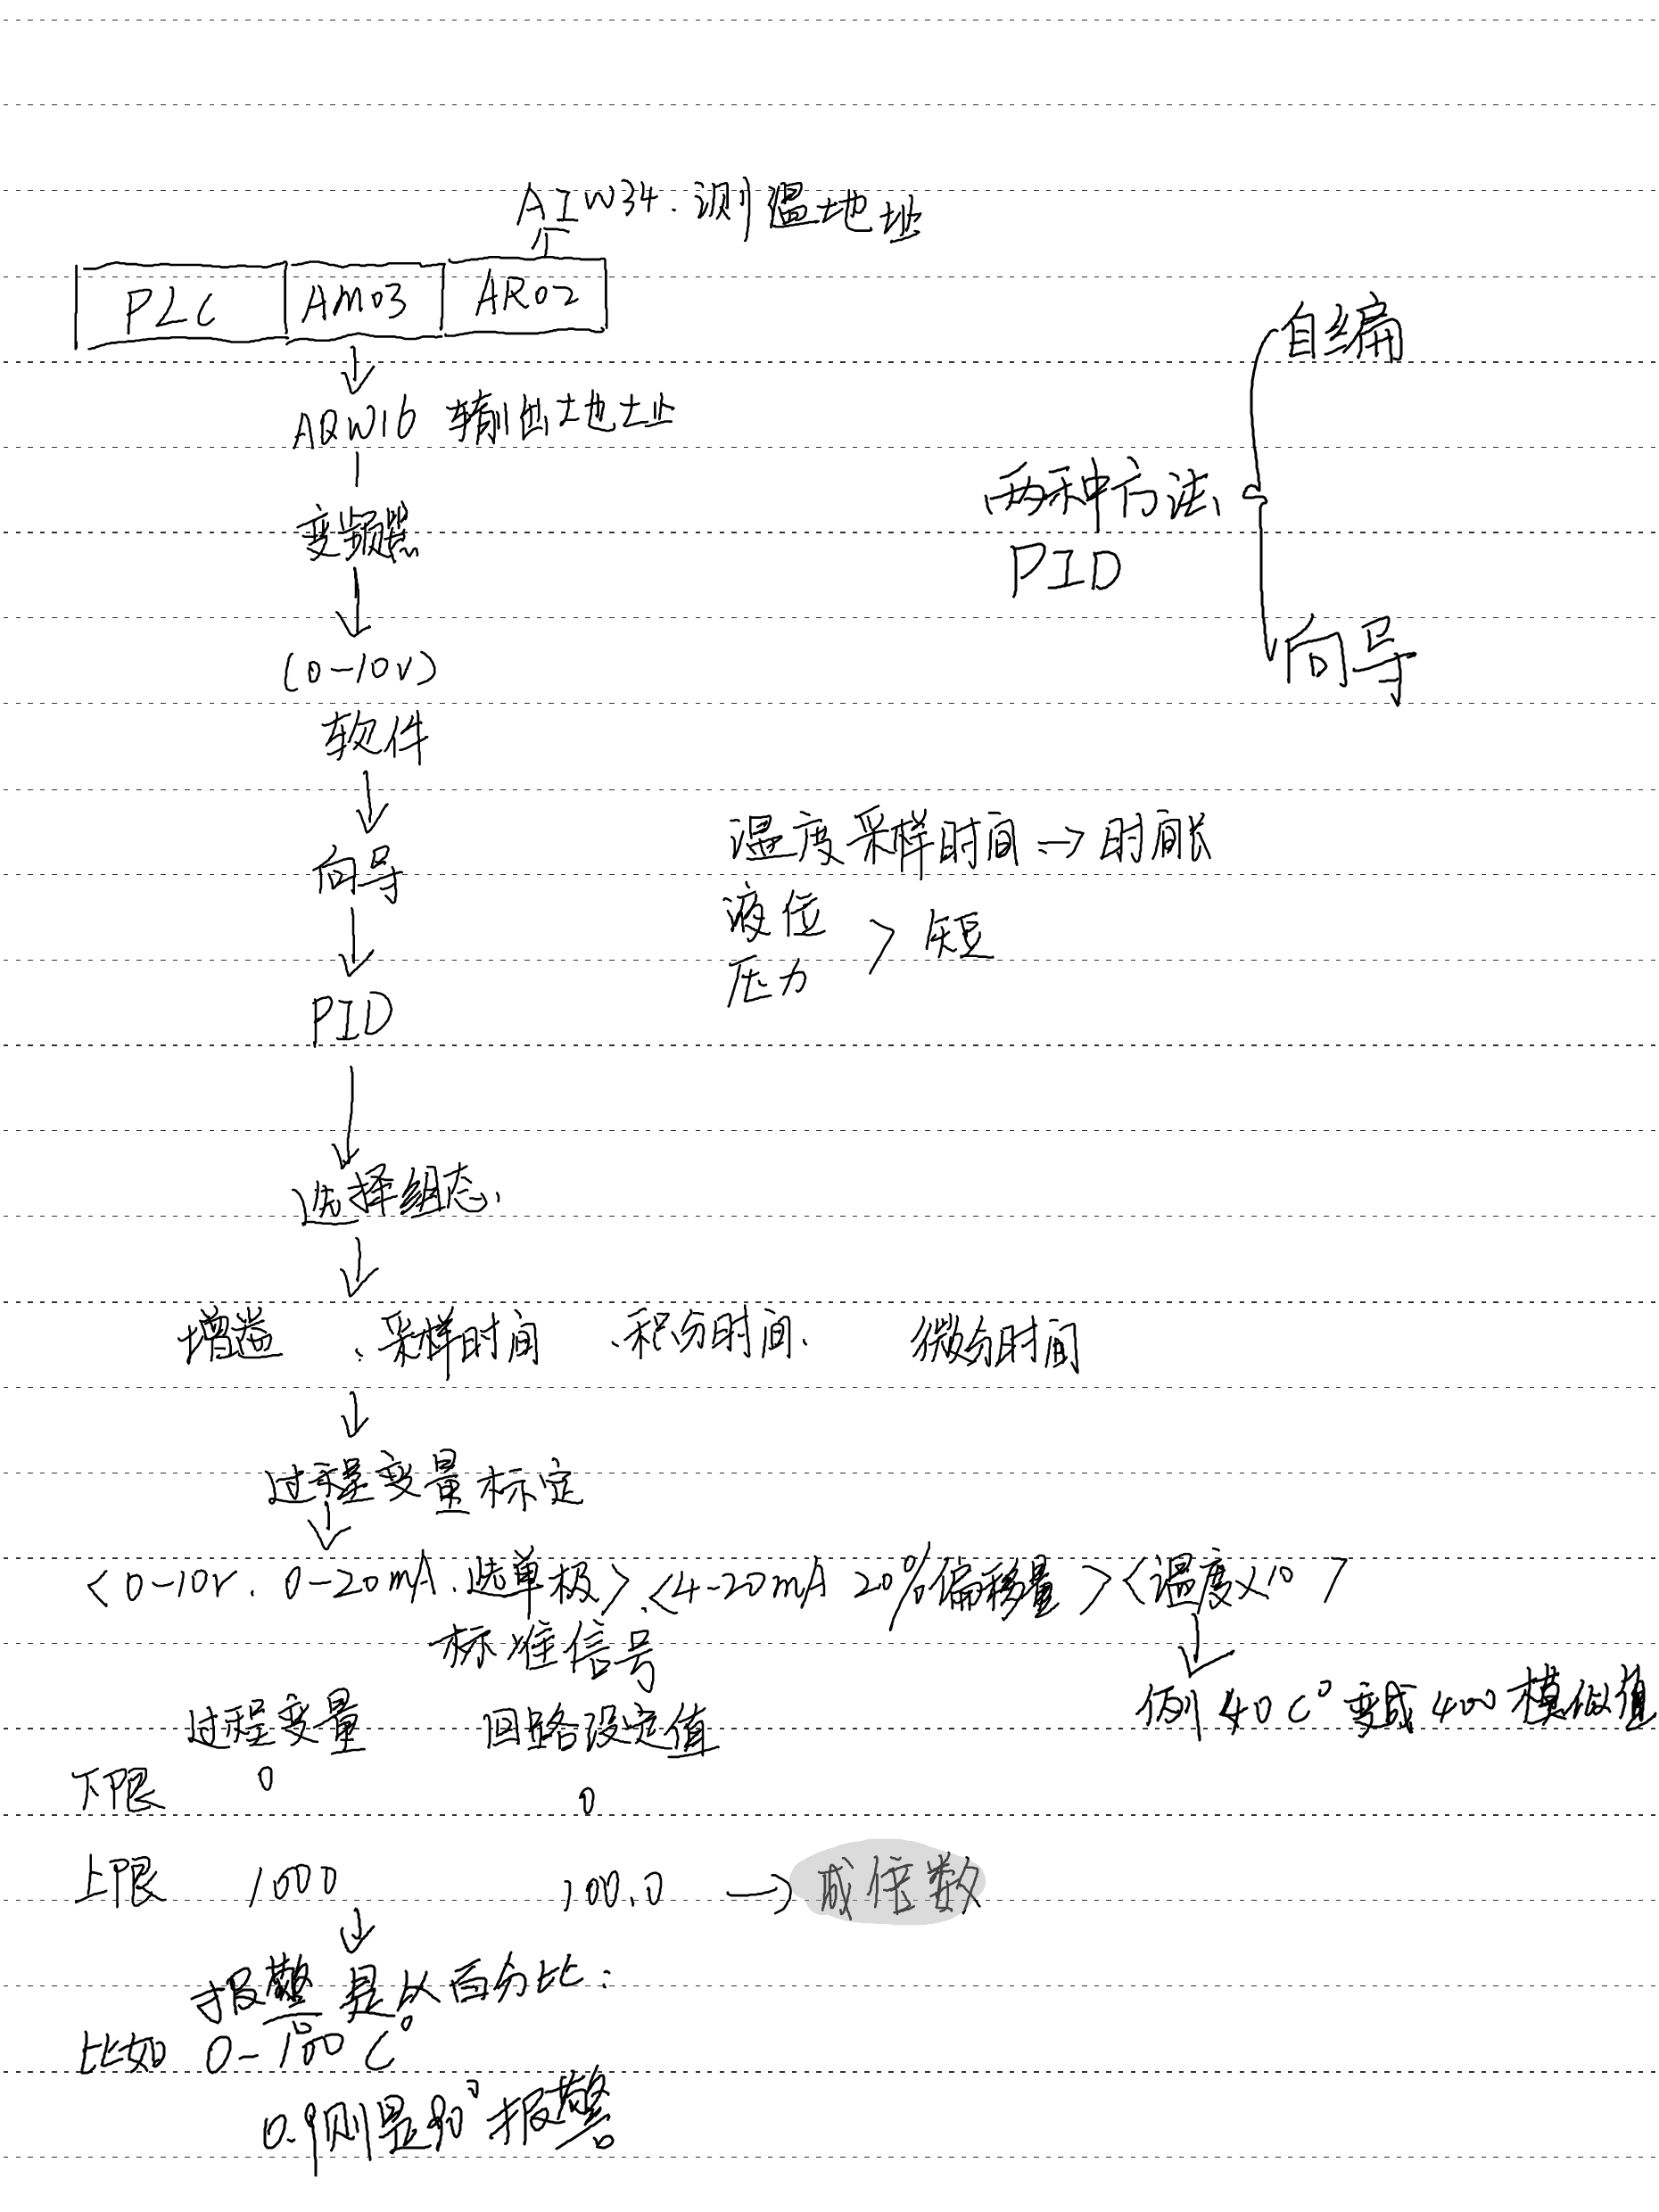 AIW34.测温地址
PLC AM03 AR02
AQW16 输出地址
变频器
(0-10V)
软件
向导
PID
选择组态、
增益、采样时间、积分时间、微分时间
过程变量标定
<0-10V. 0-20mA.选单极>、<4-20mA 20%偏移量><温度×10>
标准信号
例 40C°变成400模拟值
过程变量 回路设定值
下限 0 0
上限 1000 100.0 → 成倍数
报警是以百分比:
比如 0-100C°
0.9则是90°报警
自编
两种方法、
PID
向导
温度采样时间 → 时间长
液位
压力 > 短